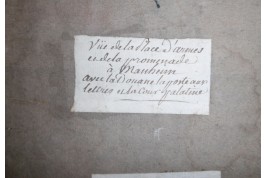 Vüe de la Place d'armes
et de la promenade
à Manheim
avec la Douane la poste aux
lettres et la Cour palatine